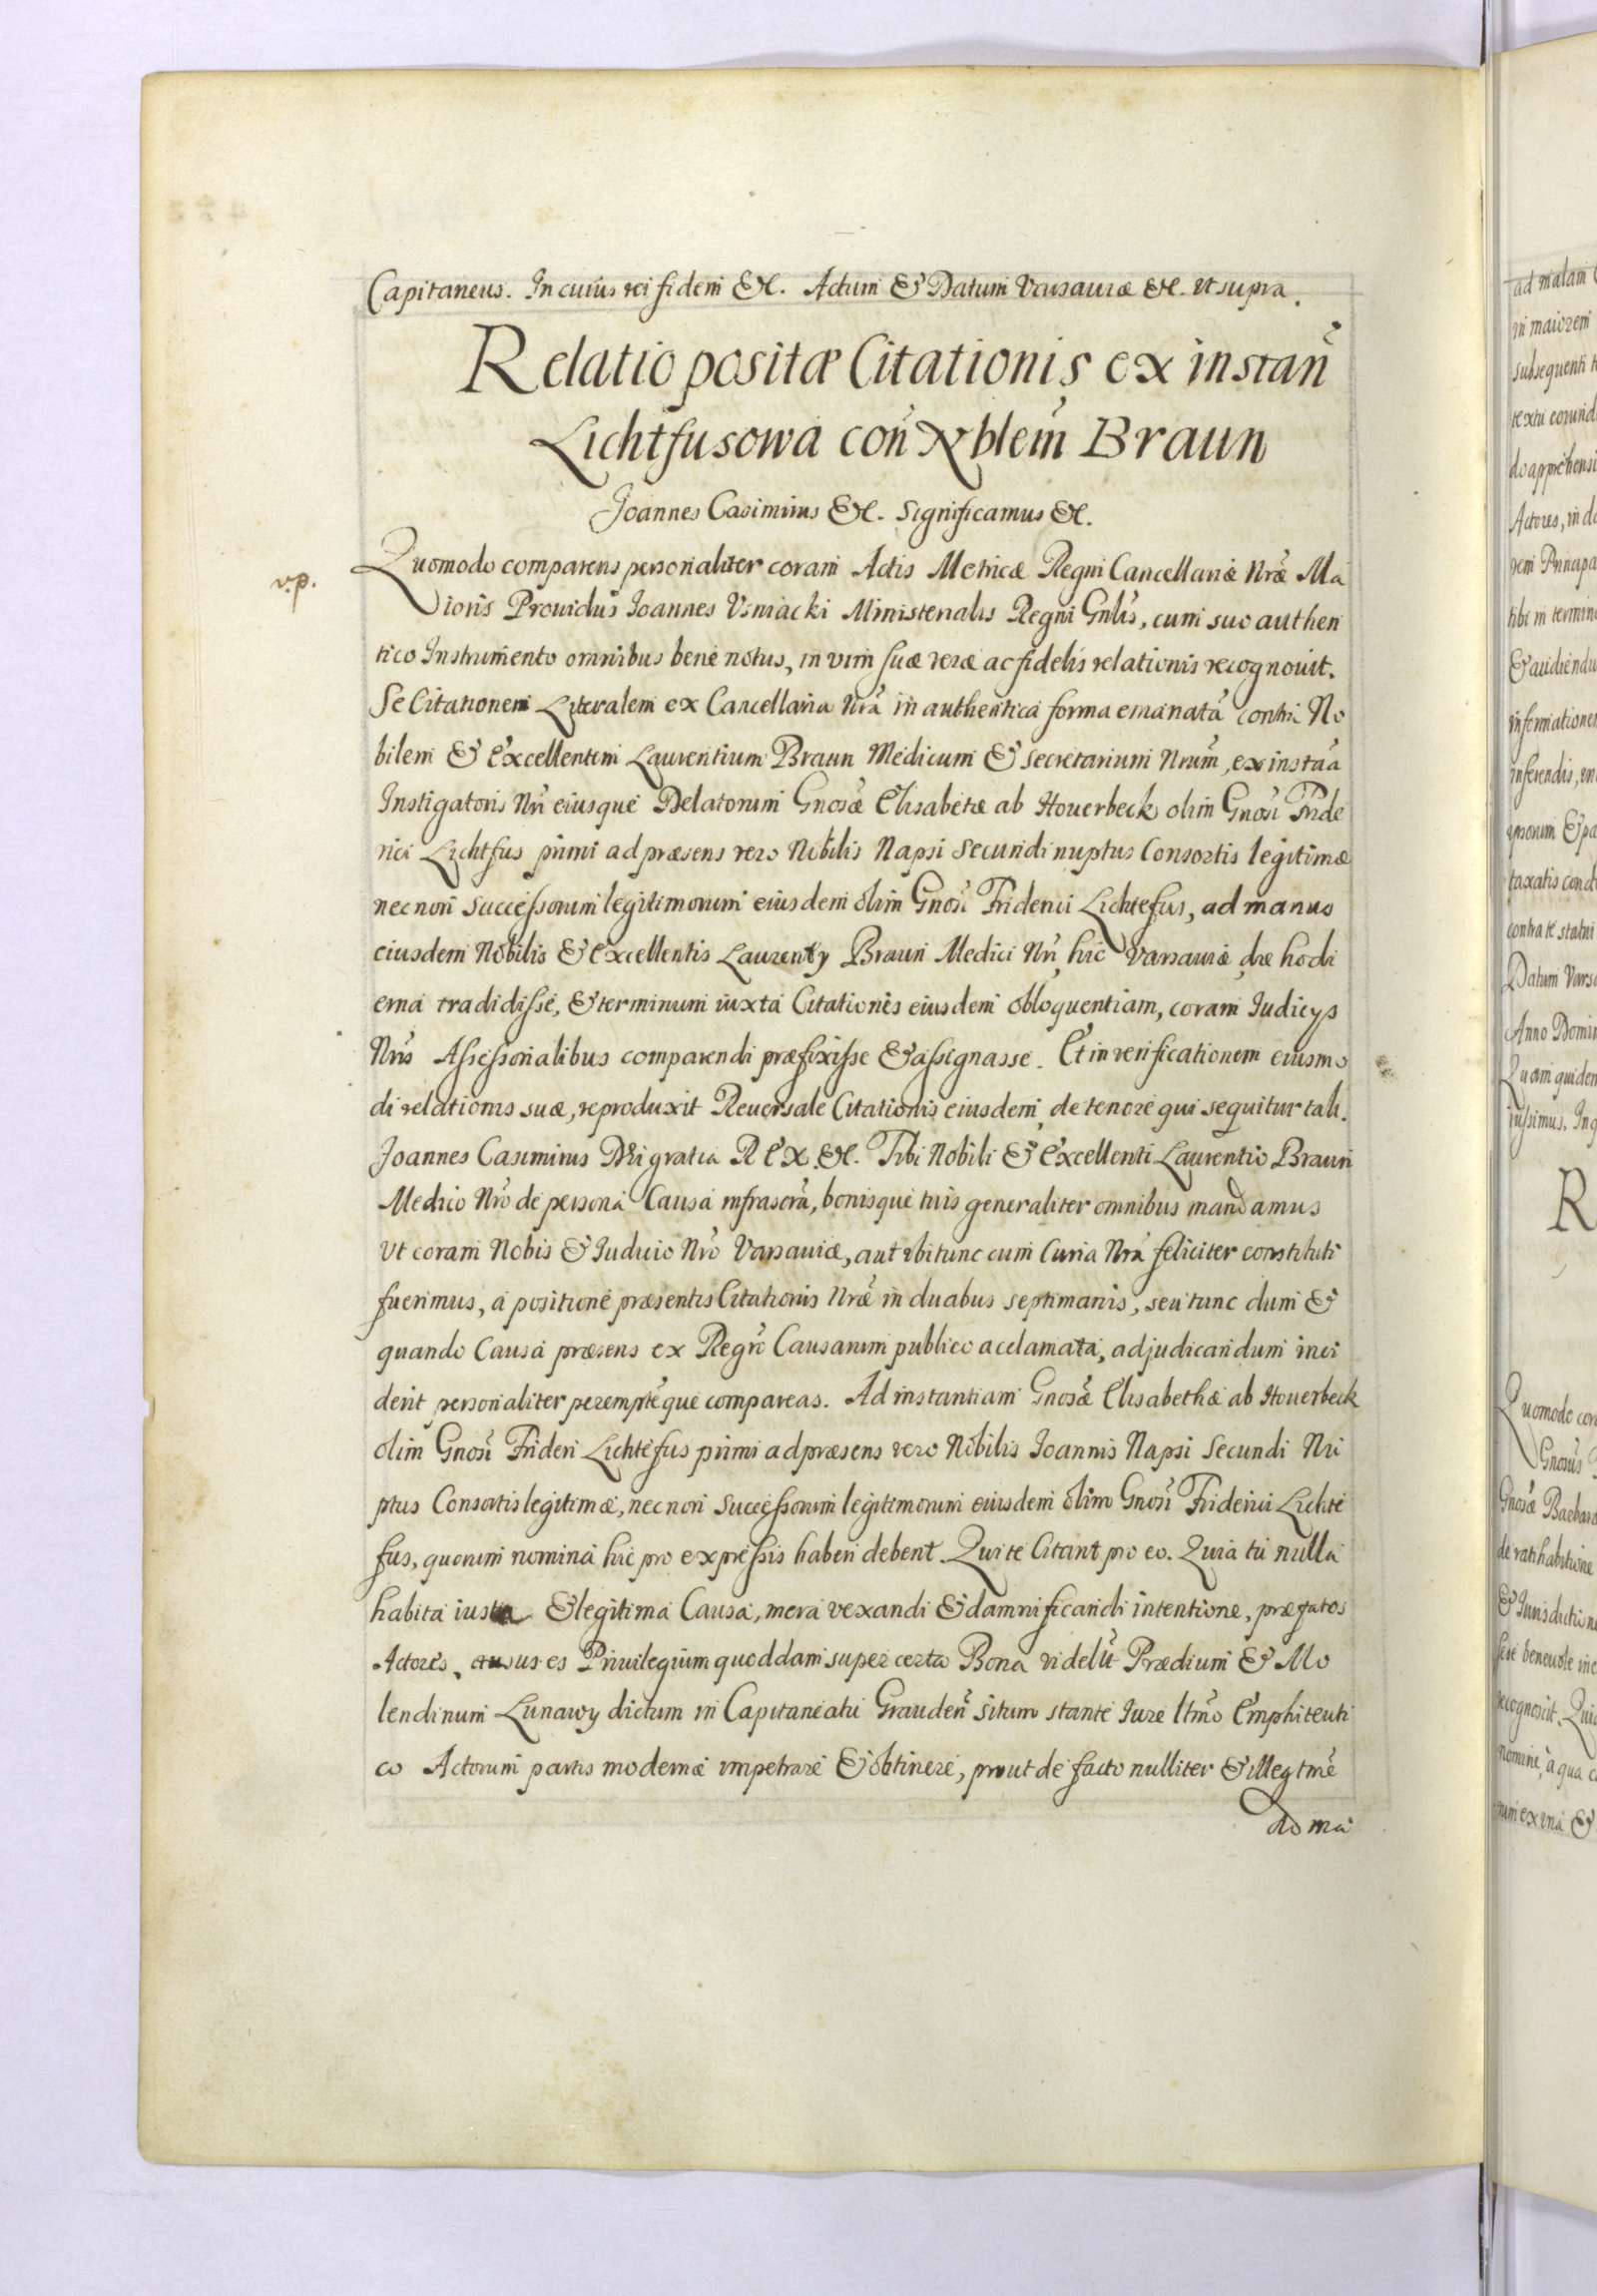 Capitaneus. In cuius rei fidem &c. Actum & Datum Varsauiæ &c. ut supra.
Relatio positæ Citationis ex instañ
Lichtfusowa coñ Nblem̃ Braun
Joannes Casimirus &c. Significamus &c.
v.p.
Quomodo comparens personaliter coram Actis Metricæ Regni Cancellariæ Nræ Ma
ioris Prouidus Joannes Usniacki Ministerialis Regni Gnlis, cum suo authen
tico Instrumento omnibus bene notus, in vim suæ veræ ac fidelis relationis recognouit.
Se Citationem Literalem ex Cancellaria Nra in authentica forma emanatã contra No
bilem & Excellentem Laurentium Braun Medicum & Secretarium Nrum, ex instãa
Instigatoris Nri eiusque Delatorum Gnosæ Elisabetæ ab Houerbeck olim Gnosi Fride
rici Lichtfus primi ad præsens vero Nobilis Napsi Secundi nuptus Consortis legitimæ
necnon Successorum legitimorum eiusdem olim Gnosi Friderici Lichtefus, ad manus
eiusdem Nobilis & Excellentis Laurenty Braun Medici Nri, hic Varsauiæ die hodi
erna tradidisse, & terminum iuxta Citationis eiusdem obloquentiam, coram Judicys
Nris Assessorialibus comparendi præfixisse & assignasse. Et in verificationem eiusmo
di relationis suæ, reproduxit Reuersale Citationis eiusdem, de tenore qui sequitur tali.
Joannes Casimirus Dei gratia REX &c. Tibi Nobili & Excellenti Laurentio Braun
Medico Nro de persona Causa infrascra, bonisque tuis generaliter omnibus mandamus
Ut coram Nobis & Iudicio Nro Varsauiæ, aut ibi tunc cum Curia Nra feliciter constituti
fuerimus, a positione præsentis Citationis Nræ in duabus septimanis, seu tunc dum &
quando Causa præsens ex Regro Causarum publico acclamata, adjudicandum inci
derit, personaliter peremptẽque compareas. Ad instantiam Gnosæ Elisabethæ ab Houerbeck
olim Gnosi Frideri Lichtefus primi ad præsens vero Nobilis Joannis Napsi Secundi Nu
ptus Consortis legitimæ, necnon Successorum legitimorum eiusdem olim Gnosi Friderici Lichte
fus, quorum nomina hic pro expressis haberi debent. Qui te Citant pro eo. Quia tu nulla
habita iusta & legitima Causa, mera vexandi & damnificandi intentione, præfatos
Actores, ausus es Priuilegium quoddam super certa Bona videlũt Prædium & Mo
lendinum Lunawy dictum in Capitaneatu Graudeñ situm stante Jure ltmo Emphiteuti
co Actorum partis modernæ impetrare & obtinere, prout de facto nulliter & illegtme
ad ma